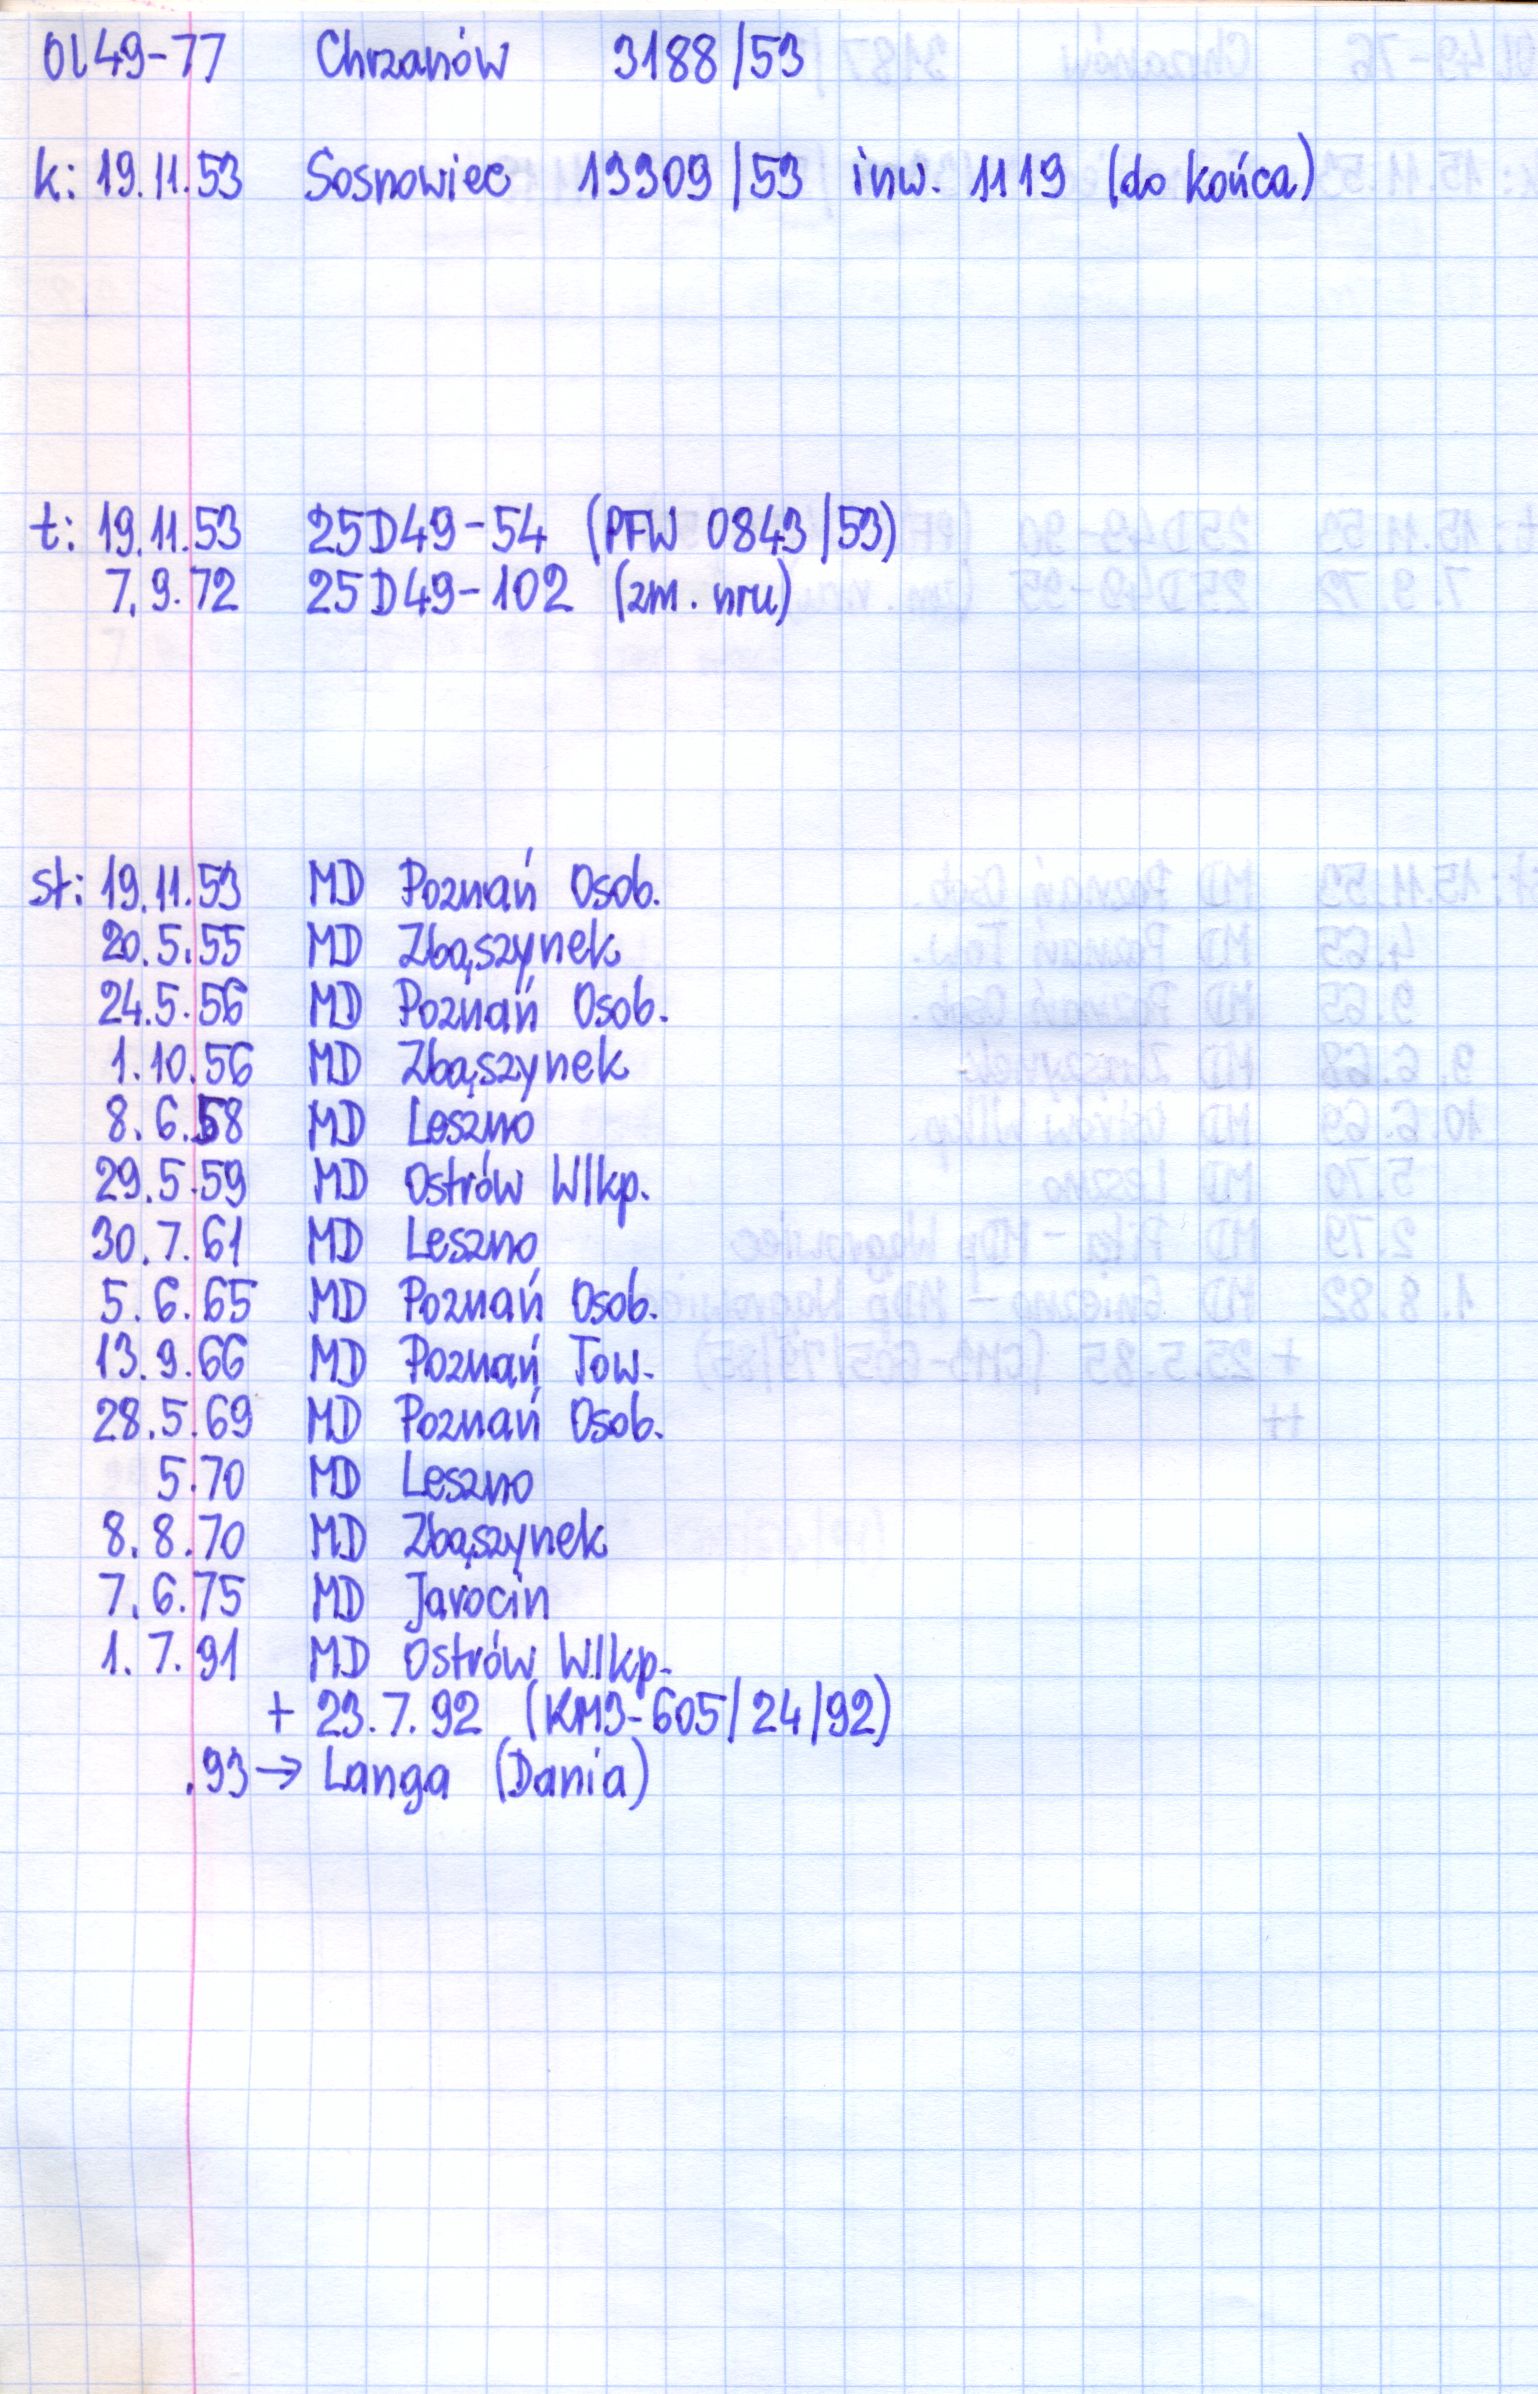 Ol49-77 Chrzanów 3188/53
k: 19.11.53 Sosnowiec 13309/53 inw. 1119 (do końca)
t: 19.11.53 25D49-54 (PFW 0843/53)
7.9.72 25D49-102 (zm. nru)
st: 19.11.53 MD Poznań Osob.
20.5.55 MD Zbąszynek
24.5.56 MD Poznań Osob.
1.10.56 MD Zbąszynek
8.6.58 MD Leszno
29.5.59 MD Ostrów Wlkp.
30.7.61 MD Leszno
5.6.65 MD Poznań Osob.
13.9.66 MD Poznań Tow.
28.5.69 MD Poznań Osob.
5.70 MD Leszno
8.8.70 MD Zbąszynek
7.6.75 MD Jarocin
1.7.91 MD Ostrów Wlkp.
+ 23.7.92 (KM3-605/24/92)
.93 → Langa (Dania)